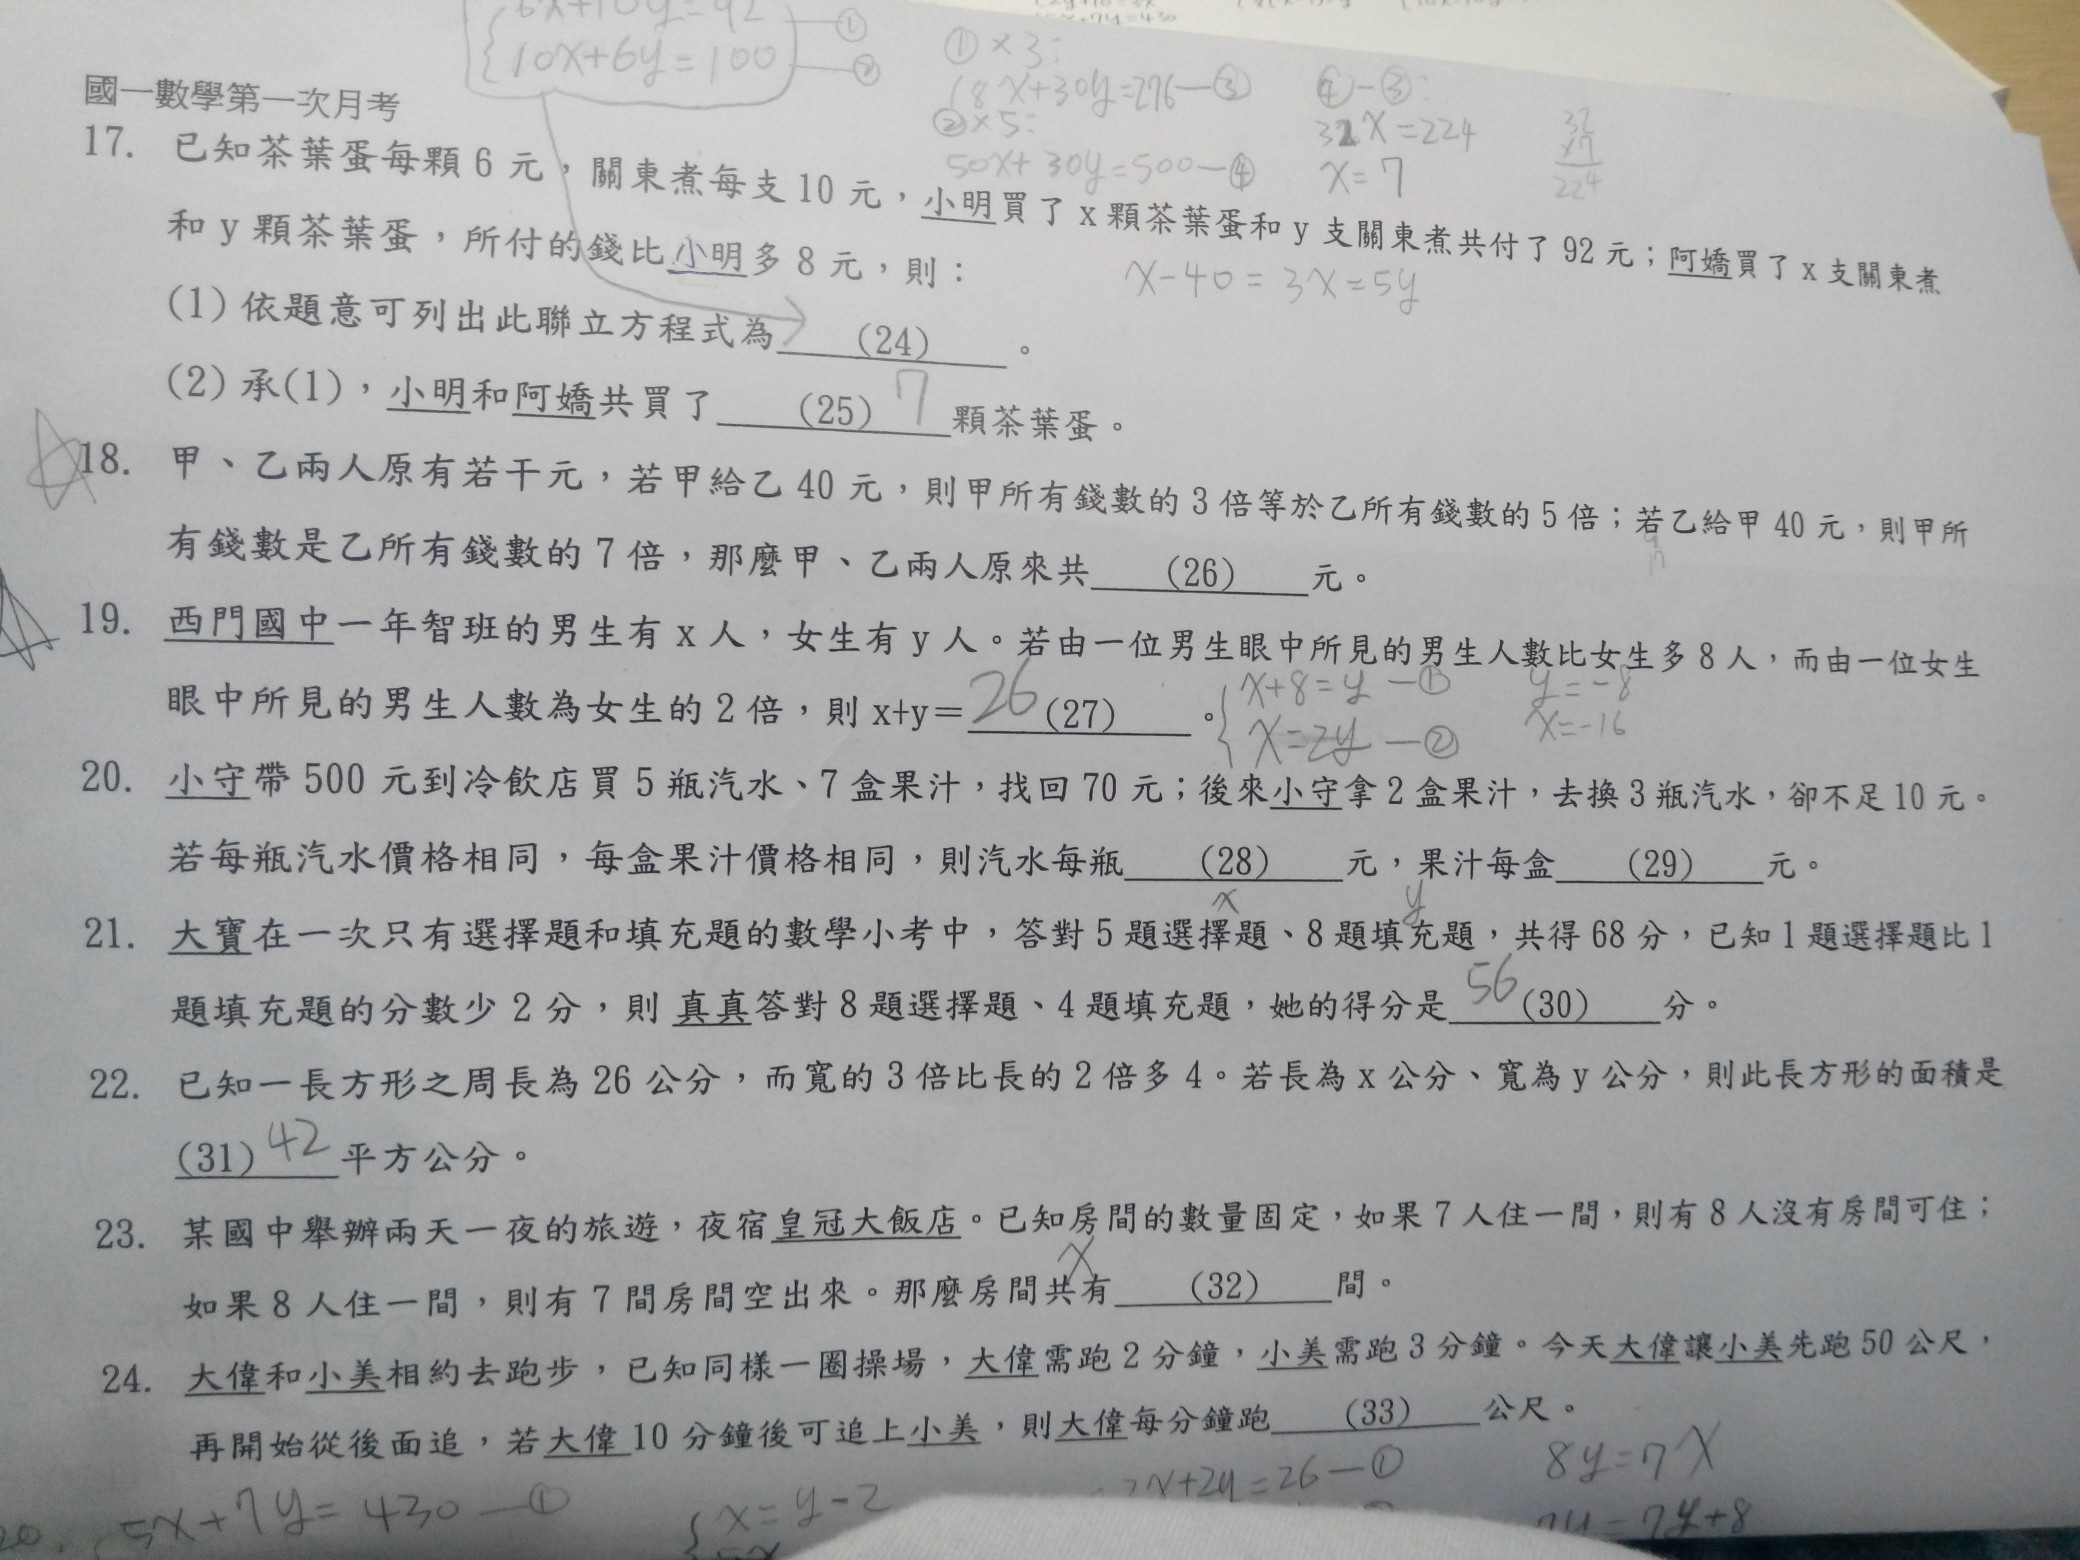 6x+10y=92 —①
10x+6y=100 —②
①×3:
18x+30y=276—③
②×5:
50x+30y=500—④
④-③:
32x=224
x=7
32
x7
224
國一數學第一次月考
17. 已知茶葉蛋每顆6元，關東煮每支10元，小明買了x顆茶葉蛋和y支關東煮共付了92元；阿嬌買了x支關東煮
和y顆茶葉蛋，所付的錢比小明多8元，則：
x-40=3x=5y
(1)依題意可列出此聯立方程式為 (24) 。
(2)承(1)，小明和阿嬌共買了 (25) 7 顆茶葉蛋。
18. 甲、乙兩人原有若干元，若甲給乙40元，則甲所有錢數的3倍等於乙所有錢數的5倍；若乙給甲40元，則甲所
有錢數是乙所有錢數的7倍，那麼甲、乙兩人原來共 (26) 元。
19. 西門國中一年智班的男生有x人，女生有y人。若由一位男生眼中所見的男生人數比女生多8人，而由一位女生
眼中所見的男生人數為女生的2倍，則x+y= 26 (27) 。
x+8=y —①
x=2y —②
y=-8
x=-16
20. 小守帶500元到冷飲店買5瓶汽水、7盒果汁，找回70元；後來小守拿2盒果汁，去換3瓶汽水，卻不足10元。
若每瓶汽水價格相同，每盒果汁價格相同，則汽水每瓶 (28) 元，果汁每盒 (29) 元。
x y
21. 大寶在一次只有選擇題和填充題的數學小考中，答對5題選擇題、8題填充題，共得68分，已知1題選擇題比1
題填充題的分數少2分，則 真真答對8題選擇題、4題填充題，她的得分是 56 (30) 分。
22. 已知一長方形之周長為26公分，而寬的3倍比長的2倍多4。若長為x公分、寬為y公分，則此長方形的面積是
(31) 42 平方公分。
23. 某國中舉辦兩天一夜的旅遊，夜宿皇冠大飯店。已知房間的數量固定，如果7人住一間，則有8人沒有房間可住；
x
如果8人住一間，則有7間房間空出來。那麼房間共有 (32) 間。
24. 大偉和小美相約去跑步，已知同樣一圈操場，大偉需跑2分鐘，小美需跑3分鐘。今天大偉讓小美先跑50公尺，
再開始從後面追，若大偉10分鐘後可追上小美，則大偉每分鐘跑 (33) 公尺。
20. 5x+7y=430 —①
x=y-2
2x+2y=26—①
8y=7x
=7y+8